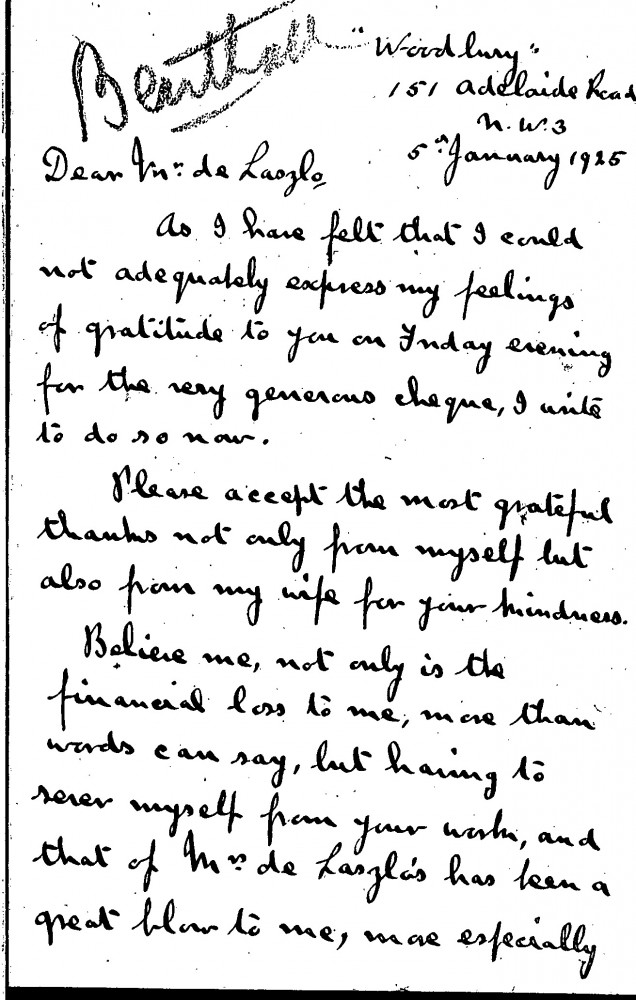 "Woodbury"
151 Adelaide Road
N.W.3
5th January 1925
Dear Mr. de Laszlo
As I have felt that I could
not adequately express my feelings
of gratitude to you on Friday evening
for the very generous cheque, I write
to do so now.
Please accept the most grateful
thanks not only from myself but
also from my wife for your kindness.
Believe me, not only is the
financial loss to me, more than
words can say, but having to
sever myself from your work, and
that of Mrs de Laszlo's has been a
great blow to me, more especially